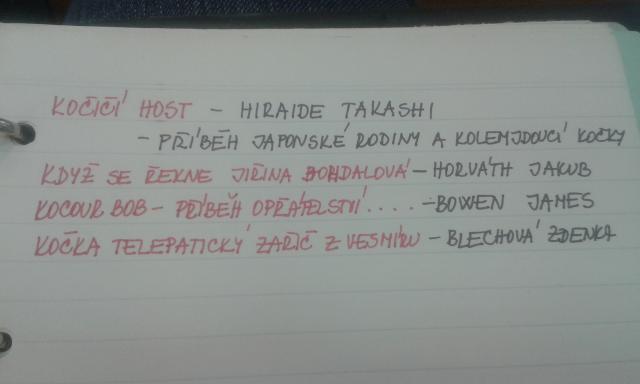 KOČIČÍ HOST - HIRAIDE TAKASHI
- PŘÍBĚH JAPONSKÉ RODINY A KOLEMJDOUCÍ KOČKY
KDYŽ SE ŘEKNE JIŘINA BOHDALOVÁ - HORVÁTH JAKUB
KOCOUR BOB - PŘÍBĚH O PŘÁTELSTVÍ.... - BOWEN JAMES
KOČKA TELEPATICKÝ ZÁŘIČ Z VESMÍRU - BLECHOVÁ ZDENKA